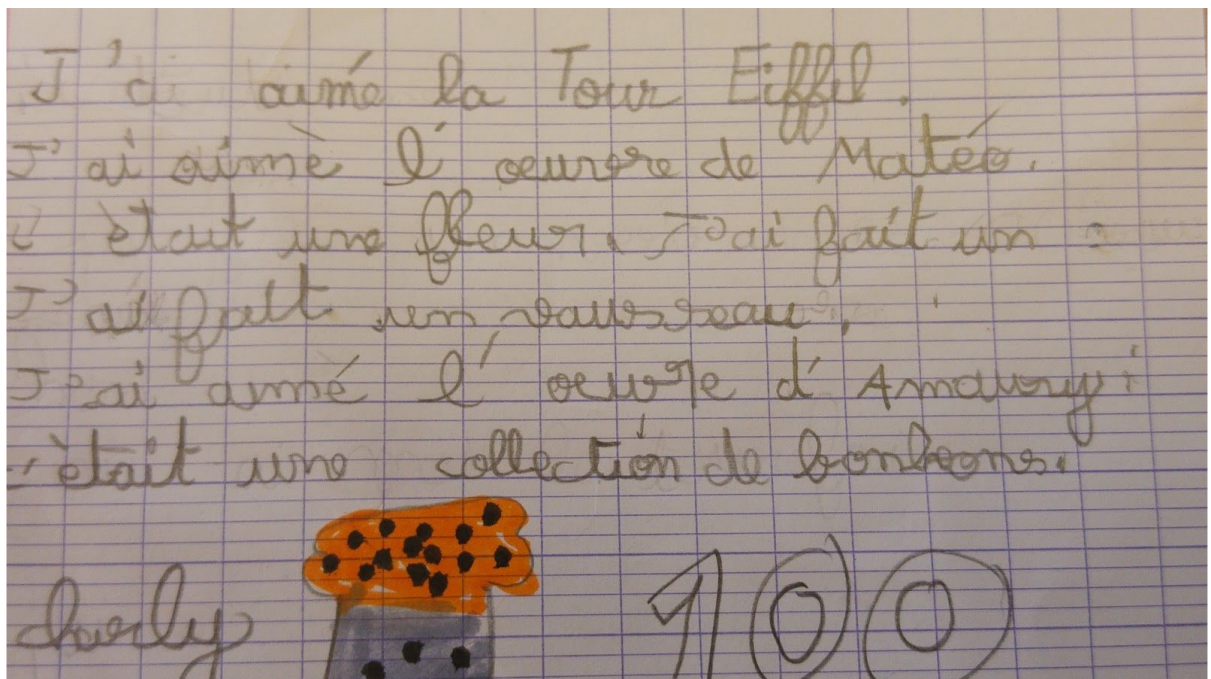 J'ai aimé la Tour Eiffel.
J'ai aimè l'oeuvre de Matéo.
c'ètait une fleur. J'ai fait un
J'ai fait un vaisseau.
J'ai aimé l'oeuvre d'Amaury :
c'ètait une collection de bonbons.
charly 100